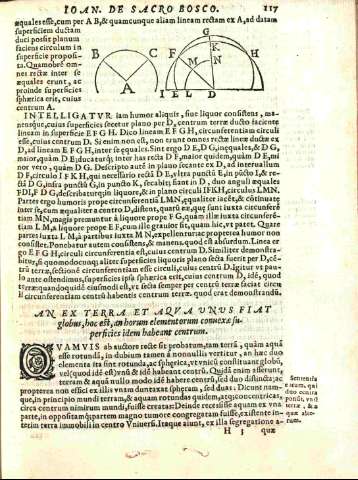 IOAN. DE SACRO BOSCO. 117
æquales esse, cum per A B, & quamcunque aliam lineam rectam ex A, ad datam
superficiem ductam
duci possit planum
faciens circulum in
superficie proposi-
D. Quamobrē om-
nes rectæ inter se
æquales erunt, ac
proinde superficies
sphærica erit, cuius
centrum A.
B C
A
G
E F H
K
M N
I E L D
INTELLIGATVR iam humor aliquis, siue liquor consistens, ma-
nensque, cuius superficies secetur plano per D, centrum terræ ducto faciente
lineam in superficie E F G H. Dico lineam E F G H, circumferentiam circuli
esse, cuius centrum D. Si enim non est, non erunt omnes rectæ lineæ ductæ ex
D, ad lineam E F G H, inter se æquales. Sint ergo D E, D G, inæquales, & D G,
maior, quàm D E; ducaturque inter has recta D F, maior quidem, quàm D E, mi
nor vero, quàm D G. Descripto autē in plano secante ex D, ad interuallum
D F, circulo I F K H, qui necessario rectā D E, vltra punctū E, in pūcto I, & re-
ctā D G, infra punctū G, in puncto K, secabit; fiant in D, duo anguli æquales
F D I, F D G, describaturque in liquore, & in plano circuli I F K H, circulus L M N.
Partes ergo humoris prope circunferentiā L M N, æqualiter iacēt, & cōtinuatę
inter se, cum æqualiter a centro D, distent,
tiam M N, magis premuntur à liquore prope F G, quàm illæ iuxta circunferē-
tiam L M, a liquore prope E F, cum ille grauior sit, quam hic, vt patet. Quare
partes iuxta L M, à partibus iuxta M N, expellentur; ac propterea humor non
consistet. Ponebatur autem consistens, & manens, quod est absurdum. Linea er
go E F G H, circuli circumferentia est, cuius centrum D. Similiter demonstra-
bitur,
terræ, sectione circunferentiam esse circuli, cuius centrū D. Igitur vt pau-
lo ante ostendimus, superficies ipsa sphærica erit, cuius centrum D, idē, quod
terræ;
circunferentiam centrū habentis centrum terræ. quod erat demonstrandū.
AN EX TERRA ET AQVA VNVS FIAT
globus, hoc est, an horum elementorum conuexæ su-
perficies idem habeant centrum.
QVAMVIS ab auctore recte sit probatum, tam terrā, quàm aquā
esse rotundā, in dubium tamen à nonnullis vertitur, an hæc duo
elementa ita sint rotunda, ac sphærica, vt vnicū constituant globū,
vel (quod idē est) vnū & idē habeant centrū. Quidā enim asserunt,
terram & aquā nullo modo idē habere centrū, sed duo distincta; ac
propterea non effici ex illis vnam duntaxat sphæram, sed duas. Dicunt nam-
que, in principio mundi terram, & aquam rotundas quidem, atque concentricas,
circa centrum nimirum mundi, fuisse creatas: Deinde necessitate aquam ex vna
parte, in oppositamque partem magno tumore congregatam fuisse, existente in-
terim terra immobili in centro Vniuersi. Itaque aiunt, ex illa segregatione a-
Sententia
eorum, qui
duo centra
ponūt, vnū
terræ, & a-
quæ alte-
rum.
H 3 quæ